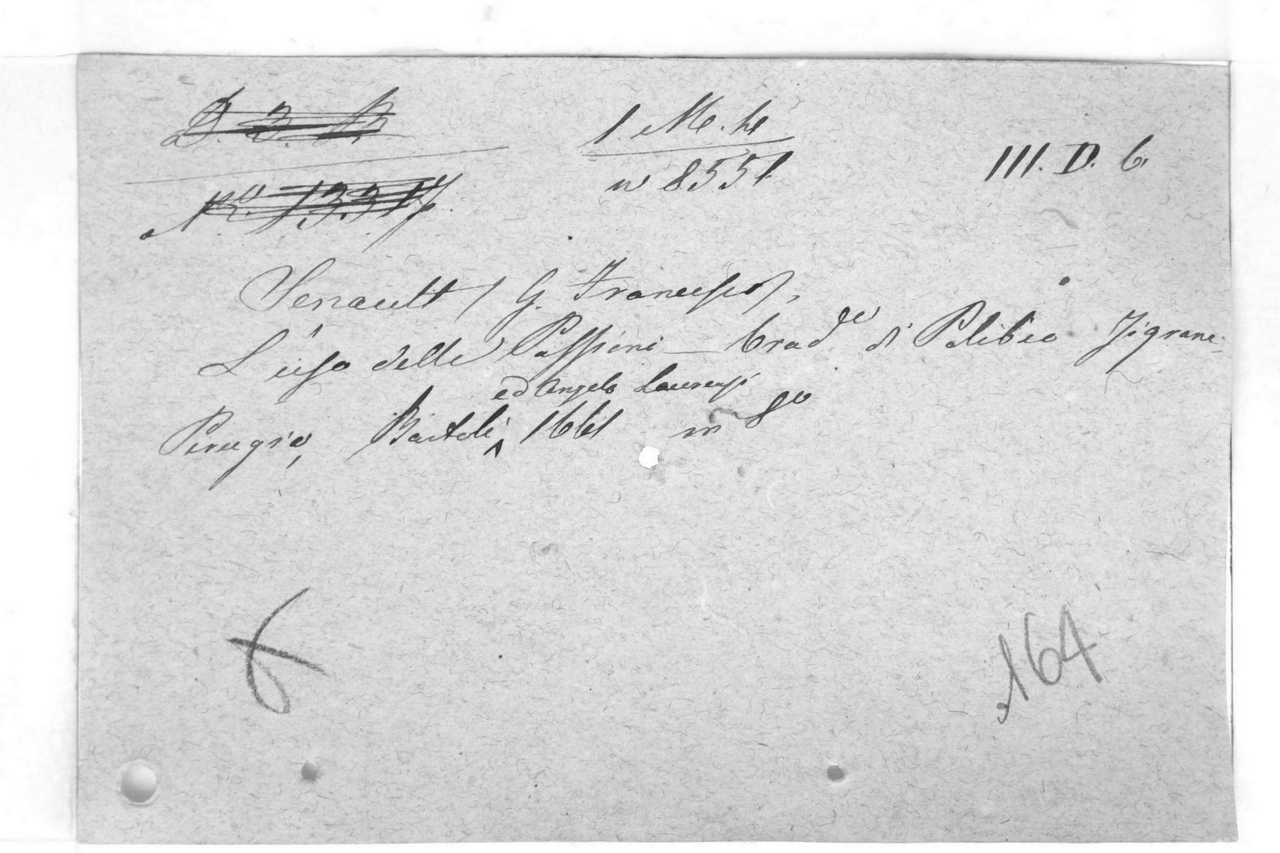 D. 3. B
No. 13317.
1 M. 4
n 8551
III. D. 6
Senault (G. Francesco).
L'uso delle Passioni — trad.ne di Polibio
ed Angelo Laurenzi
Perugia, Bartoli 1661 in 8o
164